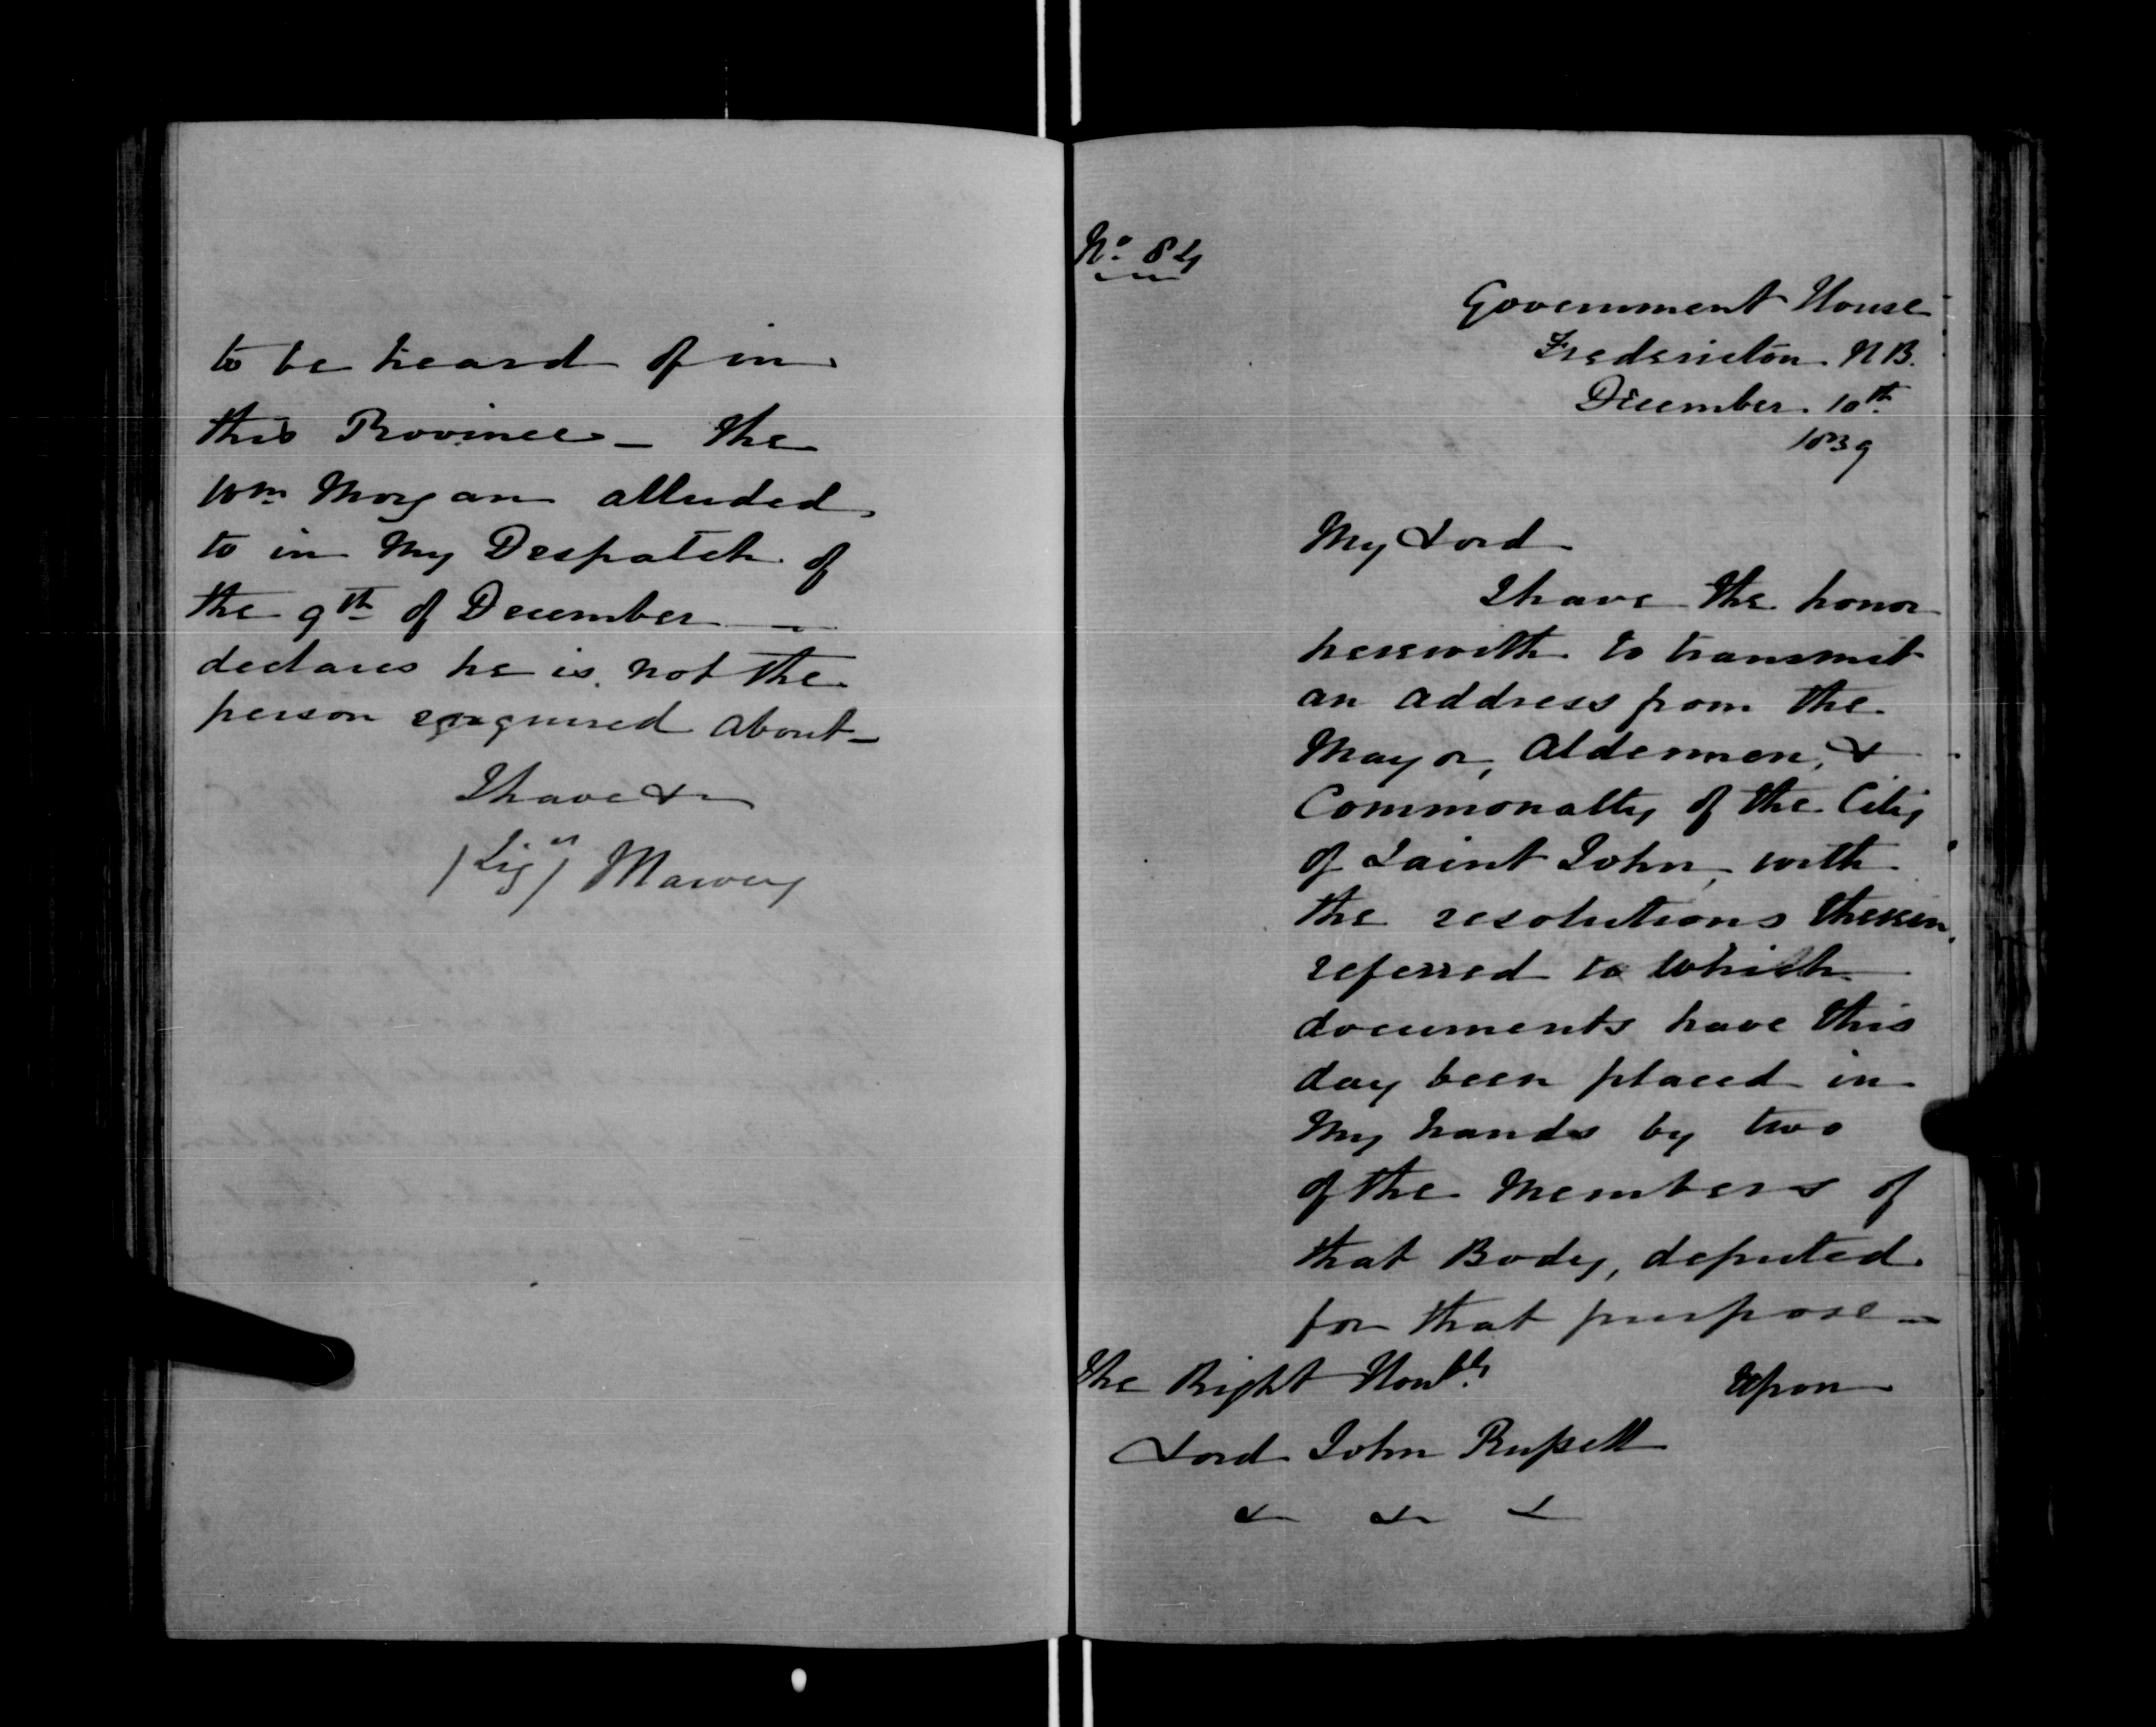 to be heard of in
this Province - the
Wm Morgan alluded
to in my Despatch of
the 9th of December -
declares he is not the
person enquired about -
I have &c
(Sigd)
No 84
Government House
Fredericton N B.
December 10th
1839
My Lord
I have the honor
herewith to transmit
an address from the
Mayor, Aldermen, &
Commonalty of the City
of Saint John, with
the resolutions therein
referred to which
documents have this
day been placed in
my hands by two
of the Members of
that Body, deputed
for that purpose -
Upon
The Right Honble
Lord John Russell
& & &